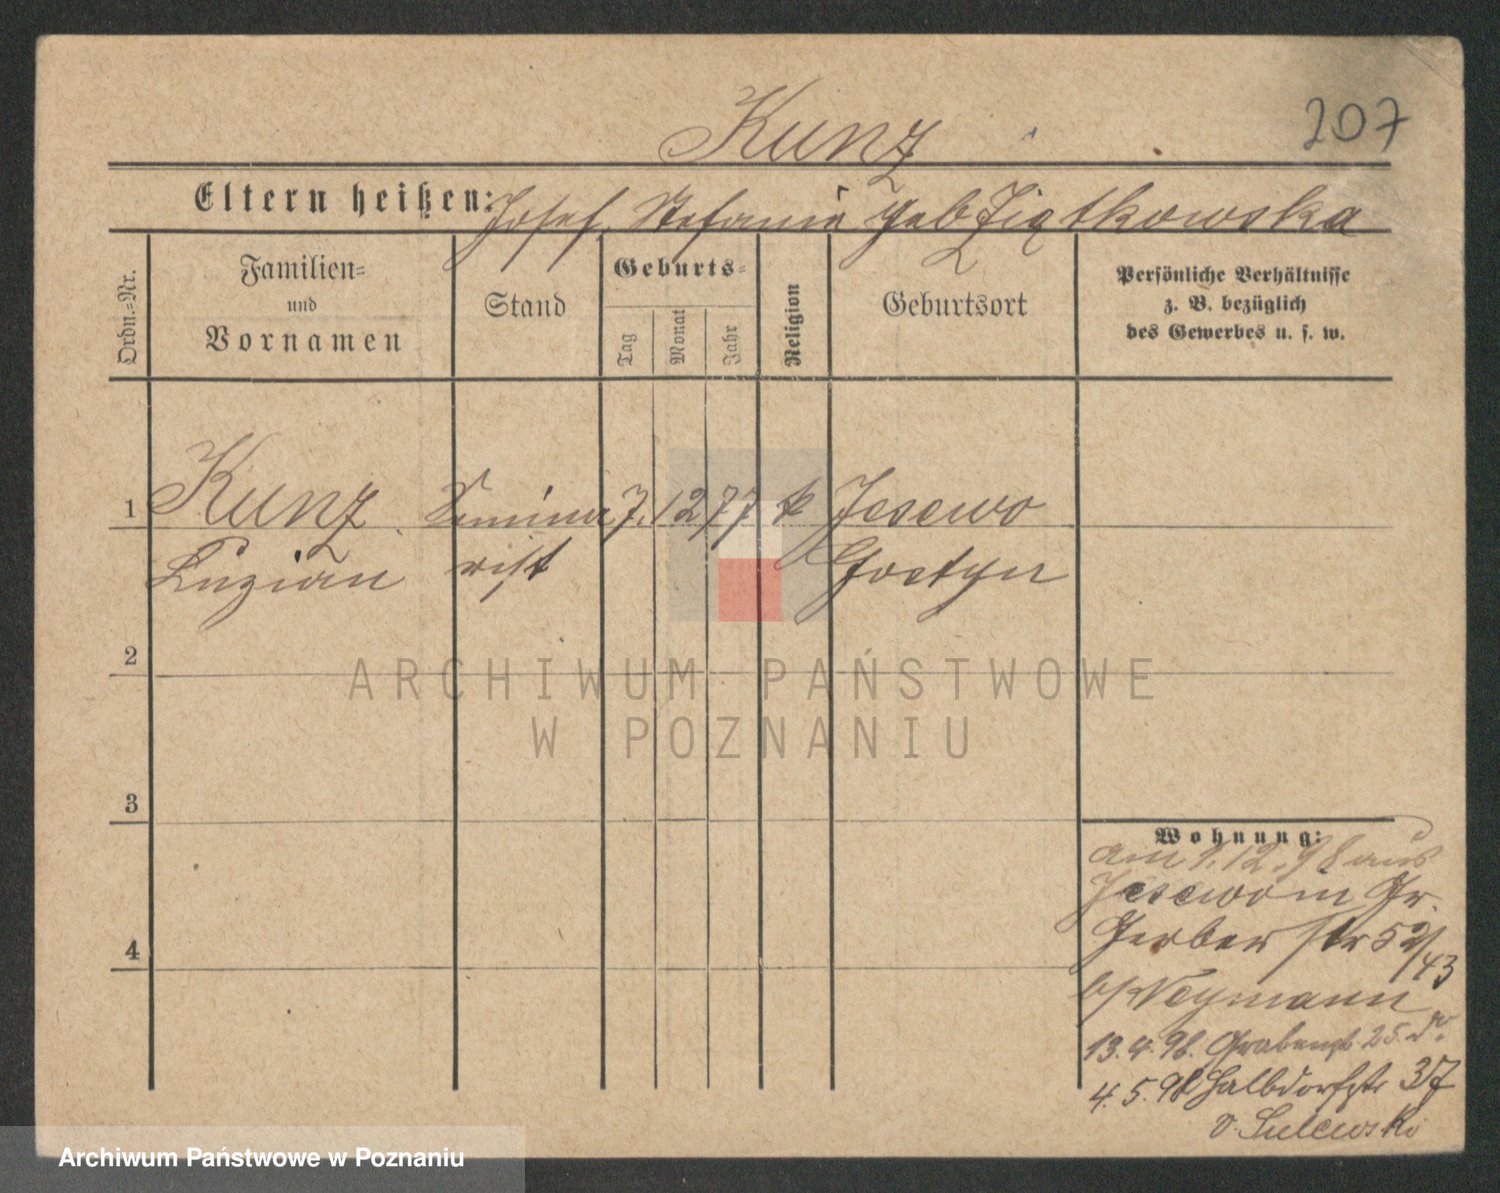 207
Kunz
Eltern heißen: Josef, Stefanie geb Ziątkowska
Ordn.=Nr.
Familien=
und
Vornamen
Stand
Geburts=
Tag
Monat
Jahr
Religion
Geburtsort
Persönliche Verhältnisse
z. B. bezüglich
des Gewerbes u. s. w.
1 Kunz Semina 7. 12 77 k Jesewo
Luzian rist Gostyn
2
3
4
ARCHIWUM PAŃSTWOWE
W POZNANIU
Wohnung:
am 1.12.98 aus
Jesewo in Gr.
Gerber str 52/43
b/ Neymann
13.4.98. Grabenstr 25.
4.5.98 Halbdorfstr 37
b. Sulewski
Archiwum Państwowe w Poznaniu